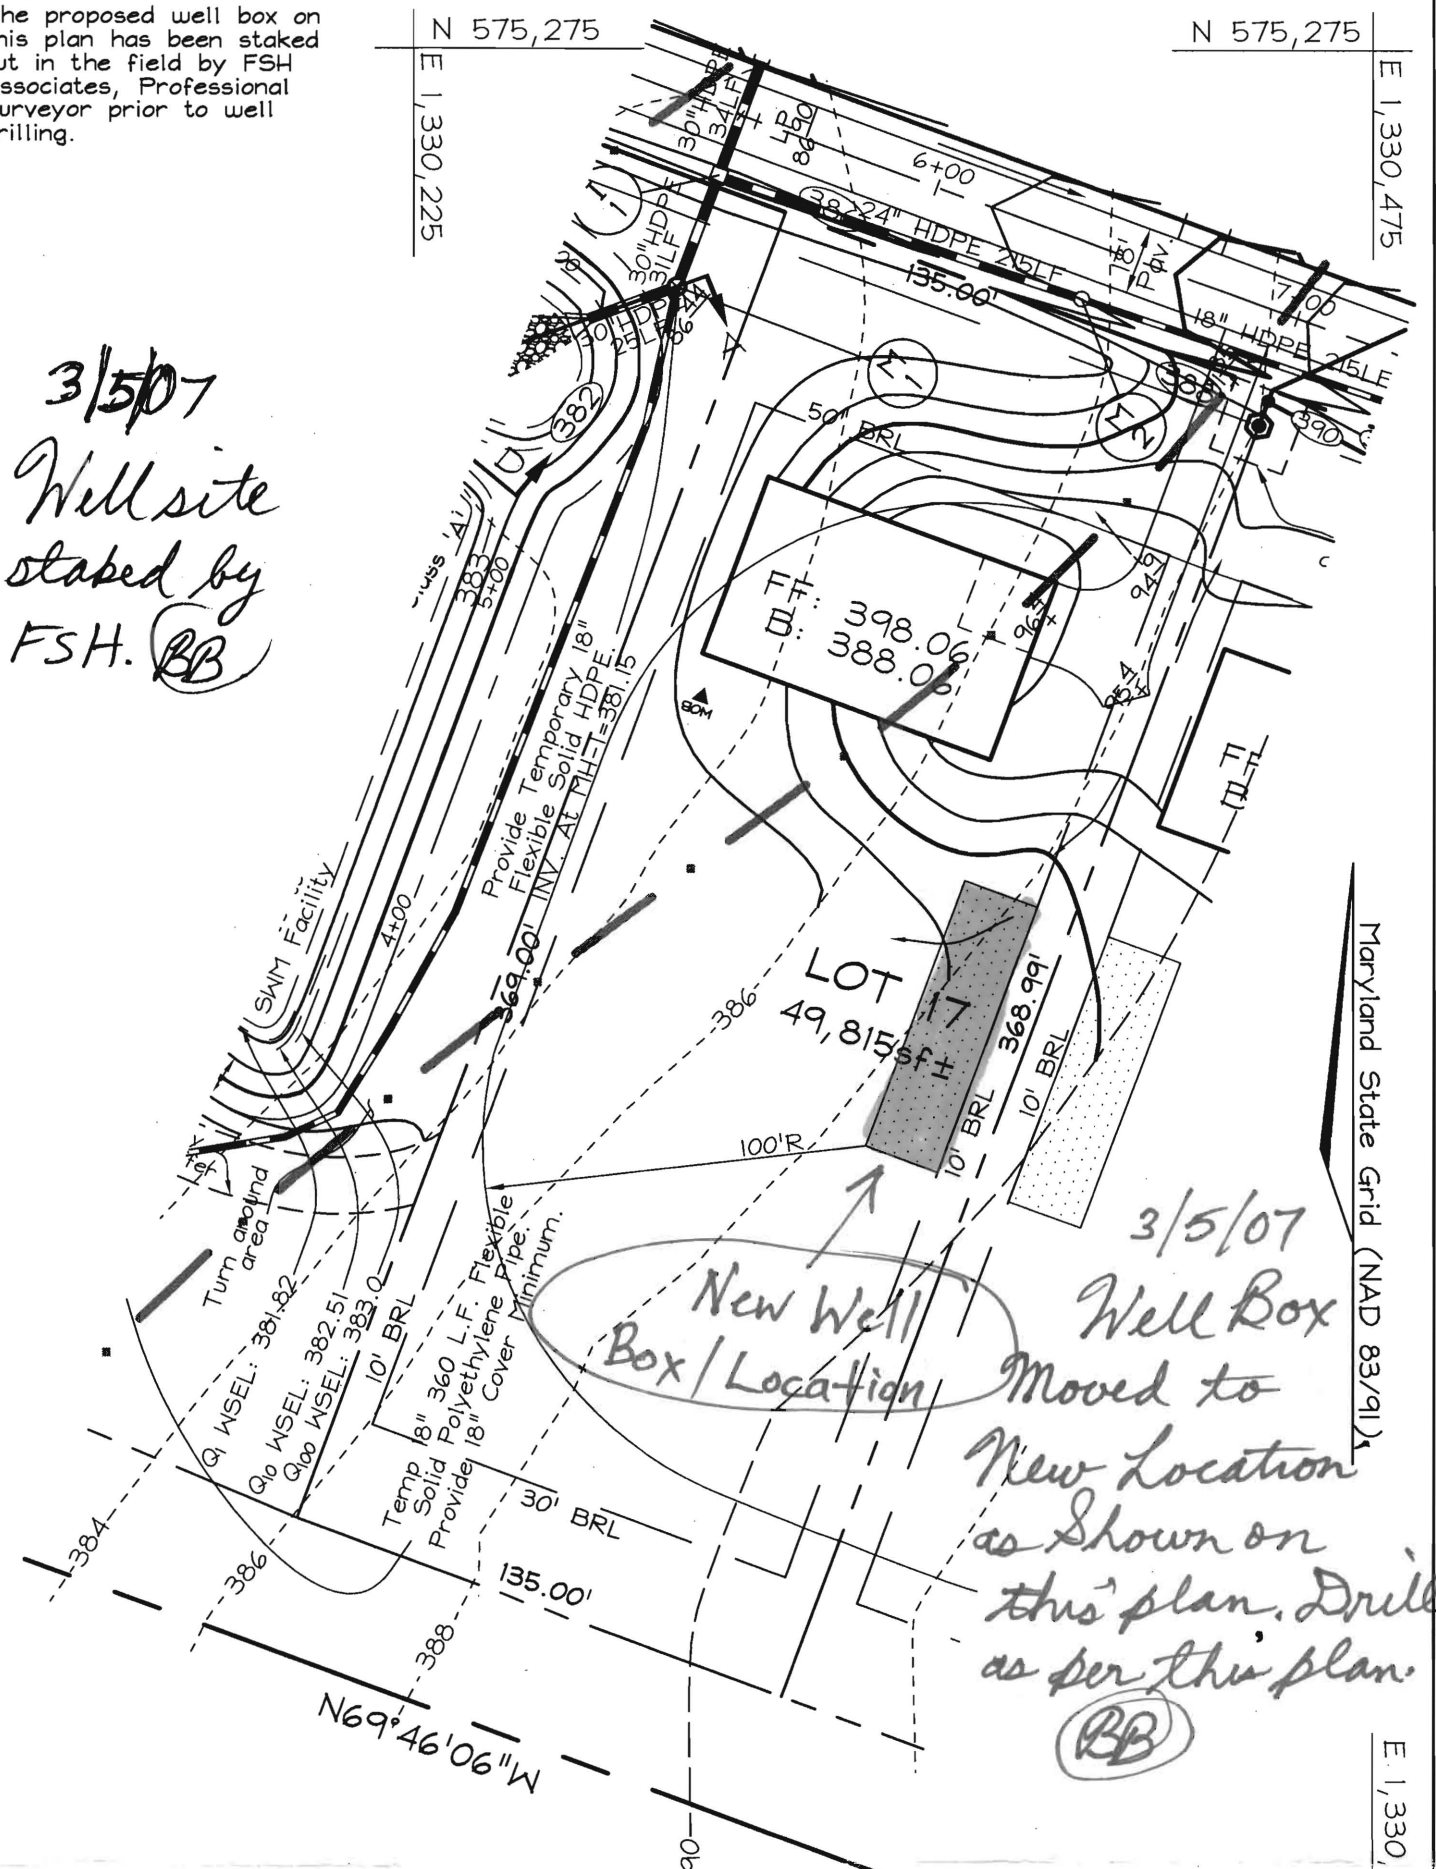 he proposed well box on
his plan has been staked
ut in the field by FSH
ssociates, Professional
urveyor prior to well
rilling.
N 575,275
E 1,330,225
N 575,275
E 1,330,475
30"HDPE
34LF
LP
86.90
6+00
382
24" HDPE 215LF
135.00'
18'
Pav.
7+00
18" HDPE 215LF
30"HDPE
31LF
30"HDPE
25LF
388
390
382
50' BRL
383
5+00
3/5/07
Well site
staked by
FSH. BB
FF: 398.06
B: 388.06
FF
BOM
Provide Temporary 18"
Flexible Solid HDPE.
INV. At MH-1=381.15
SWM Facility
4+00
369.00'
386
LOT 17
49,815sf±
368.99'
10' BRL
10' BRL
100'R
Maryland State Grid (NAD 83/91)
Turn around
area
Q1 WSEL: 381.82
Q10 WSEL: 382.51
Q100 WSEL: 383.0
10' BRL
Temp 18" 360 L.F. Flexible
Solid Polyethylene Pipe.
Provide 18" Cover Minimum.
New Well
Box/Location
3/5/07
Well Box
Moved to
New Location
as Shown on
this plan. Drill
as per this plan.
BB
30' BRL
135.00'
384
386
388
N69°46'06"W
E 1,330,